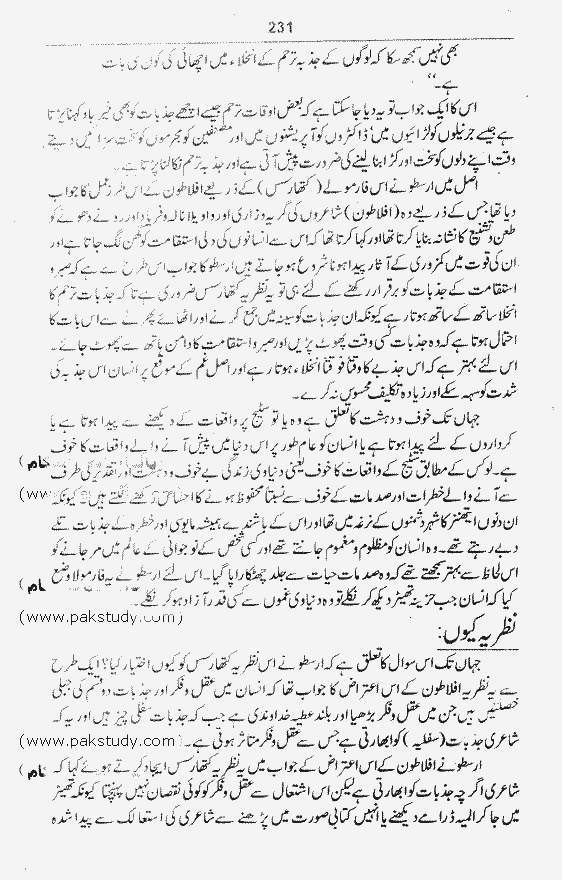 231
بھی نہیں سمجھ سکا کہ لوگوں کے جذبہ ترحم کے انخلاء میں اچھائی کی کون سی بات
ہے۔‘‘
اس کا ایک جواب تو یہ دیا جا سکتا ہے کہ بعض اوقات ترحم جیسے اچھے جذبات کو بھی خیر باد کہنا پڑتا
ہے جیسے جرنیلوں کو لڑائیوں میں‘ ڈاکٹروں کو آپریشنوں میں اور مصنفین کو مجرموں کو سخت سزائیں دیتے
وقت اپنے دلوں کو سخت اور کڑا بنا لینے کی ضرورت پیش آتی ہے اور جذبہ ترحم نکالنا پڑتا ہے۔
اصل میں ارسطو نے اس فارمولے (کتھارسس) کے ذریعے افلاطون کے اس طرز عمل کا جواب
دیا تھا جس کے ذریعے وہ (افلاطون) شاعروں کی گریہ وزاری اور واویلا نالہ وفریاد اور رونے دھونے کو
طعن وتشنیع کا نشانہ بنایا کرتا تھا اور کہا کرتا تھا کہ اس سے انسانوں کی دلی استقامت کو گھن لگ جاتا ہے اور
ان کی قوت میں کمزوری کے آثار پیدا ہونا شروع ہو جاتے ہیں ارسطو کا جواب اس طرح سے ہے کہ صبر و
استقامت کے جذبات کو برقرار رکھنے کے لئے ہی تو یہ نظریہ کتھارسس ضروری ہے تا کہ جذبات ترحم کا
انخلا ساتھ کے ساتھ ہوتا رہے کیونکہ ان جذبات کو سینہ میں جمع کرنے اور اٹھائے پھرنے سے اس بات کا
احتمال ہوتا ہے کہ وہ جذبات کسی وقت پھوٹ پڑیں اور صبر و استقامت کا دامن ہاتھ سے چھوٹ جائے۔
اس لئے بہتر ہے کہ اس جذبے کا وقتاً فوقتاً انخلاء ہوتا رہے اور اصل غم کے موقع پر انسان اس جذبہ کی
شدت کو سہہ سکے اور زیادہ تکلیف محسوس نہ کرے۔
جہاں تک خوف و دہشت کا تعلق ہے وہ یا تو سٹیج پر واقعات کے دیکھنے سے پیدا ہوتا ہے یا
کرداروں کے لئے پیدا ہوتا ہے یا انسان کو عام طور پر اس دنیا میں پیش آنے والے واقعات کا خوف
ہے۔ لوکس کے مطابق سٹیج کے واقعات کا خوف یعنی دنیاوی زندگی بے خوف و دہشت اور تقدیر کی طرف
سے آنے والے خطرات اور صدمات کے خوف سے نسبتاً محفوظ ہونے کا احساس رکھنے لگتے ہیں۔ کیونکہ
ان دنوں ایتھنز کا شہر دشمنوں کے نرغہ میں تھا اور اس کے باشندے ہمیشہ مایوسی اور خطرہ کے جذبات تلے
دبے رہتے تھے۔ وہ انسان کو مظلوم و مغموم جانتے تھے اور کسی شخص کے نوجوانی کے عالم میں مر جانے کو
اس لحاظ سے بہتر سمجھتے تھے کہ وہ صدمات حیات سے جلد چھٹکارا پا گیا۔ اس لئے ارسطو نے یہ فارمولا وضع
کیا کہ انسان جب حزینہ تھیٹر دیکھ کر نکلے تو وہ دنیاوی غموں سے کسی قدر آزاد ہو کر نکلے۔
(www.pakstudy.com)
نظریہ کیوں:
جہاں تک اس سوال کا تعلق ہے کہ ارسطو نے اس نظریہ کتھارسس کو کیوں اختیار کیا؟ ایک طرح
سے یہ نظریہ افلاطون کے اس اعتراض کا جواب تھا کہ انسان میں عقل و فکر اور جذبات دو قسم کی جبلی
خصلتیں ہیں جن میں عقل و فکر بڑھیا اور بلند عطیہ خداوندی ہے جب کہ جذبات سفلی چیز ہیں اور یہ کہ
شاعری جذبات (سفلیہ) کو ابھارتی ہے جس سے عقل و فکر متاثر ہوتی ہے۔ (www.pakstudy.com)
ارسطو نے افلاطون کے اس اعتراض کے جواب میں یہ نظریہ کتھارسس ایجاد کرتے ہوئے کہا کہ
شاعری اگرچہ جذبات کو ابھارتی ہے لیکن اس اشتعال سے عقل و فکر کو کوئی نقصان نہیں پہنچتا کیونکہ تھیٹر
میں جا کر المیہ ڈرامے دیکھنے یا انہیں کتابی صورت میں پڑھنے سے شاعری کی سے پیدا شدہ